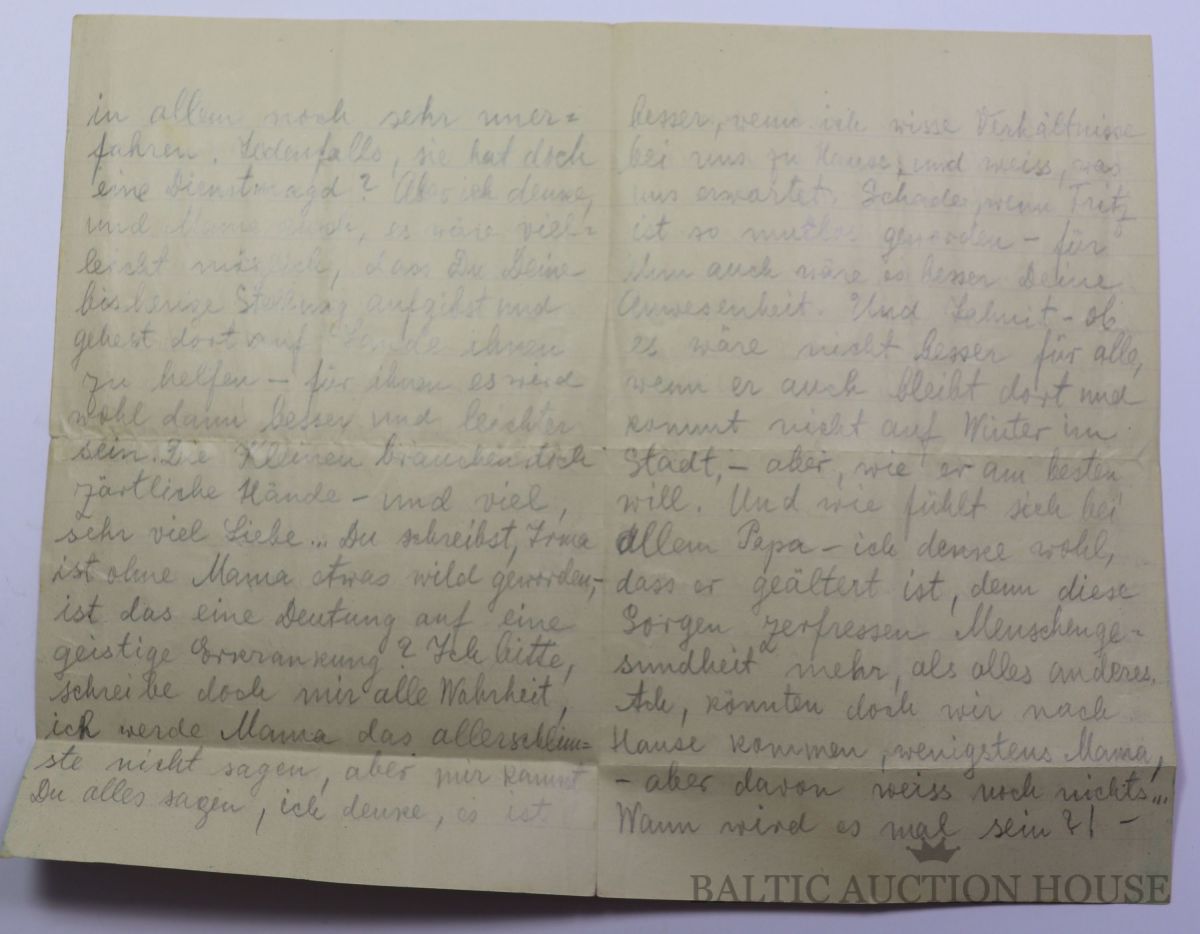 in allem noch sehr uner=
fahren. Jedenfalls, sie hat doch
eine Dienstmagd? Aber ich denke,
und Mama auch, es wäre viel=
leicht möglich, dass Du Deine
bisherige Stellung aufgibst und
gehest dort auf Lande ihnen
zu helfen – für ihnen es wird
wohl dann besser und leichter
sein. Die Kleinen brauchen
zärtliche Hände – und viel,
sehr viel Liebe... Du schreibst, Irma
ist ohne Mama etwas wild geworden, –
ist das eine Deutung auf eine
geistige Erkrankung? Ich bitte,
schreibe doch mir alle Wahrheit,
ich werde Mama das allerschlim=
ste nicht sagen, aber mir kannst
Du alles sagen, ich denke, es ist
besser, wenn ich wisse Verhältnisse
bei uns zu Hause, und weiss, was
uns erwartet. Schade, wenn Fritz
ist so mutlos geworden – für
ihm auch wäre es besser Deine
Anwesenheit. Und – ob
es wäre nicht besser für alle,
wenn er auch bleibt dort und
kommt nicht auf Winter im
Stadt, – aber, wie er am besten
will. Und wie fühlt sich bei
allem Papa – ich denke wohl,
dass er geältert ist, denn diese
Sorgen zerfressen Menschenge=
sundheit mehr, als alles anderes.
Ach, könnten doch wir nach
Hause kommen, wenigstens Mama,
– aber davon weiss noch nichts...
Wann wird es mal sein?! –
BALTIC AUCTION HOUSE